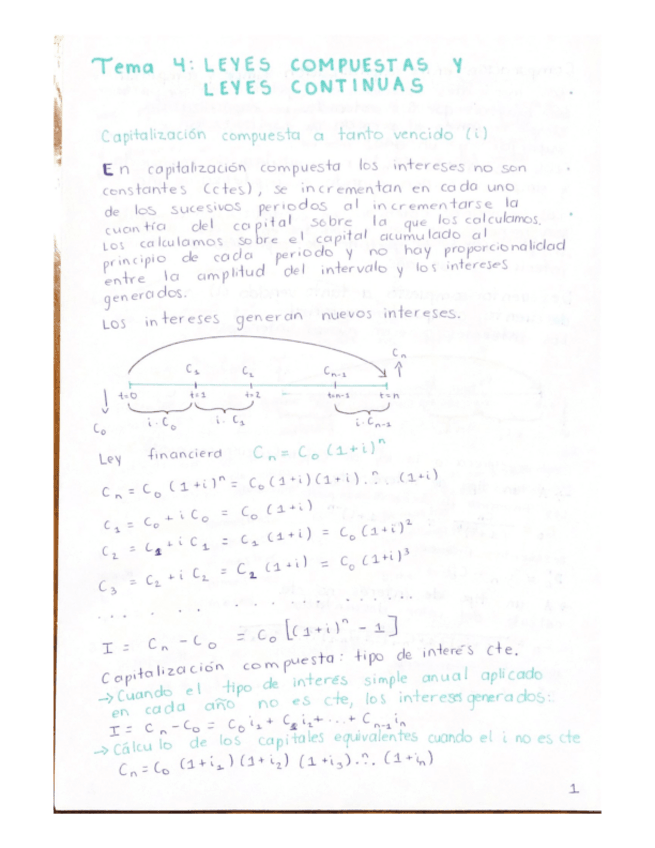 Tema 4: LEYES COMPUESTAS Y
LEYES CONTINUAS
Capitalización compuesta a tanto vencido (i)
En capitalización compuesta los intereses no son
constantes (ctes), se incrementan en cada uno
de los sucesivos periodos al incrementarse la
cuantía del capital sobre la que los calculamos.
Los calculamos sobre el capital acumulado al
principio de cada periodo y no hay proporcionalidad
entre la amplitud del intervalo y los intereses
generados.
Los intereses generan nuevos intereses.
Cn
C1 C2 Cn-1
t=0 t=1 t=2 t=n-1 t=n
C0 i·C0 i·C1 i·Cn-1
Ley financiera Cn = C0 (1+i)^n
Cn = C0 (1+i)^n = C0 (1+i)(1+i).n. (1+i)
C1 = C0 + i C0 = C0 (1+i)
C2 = C1 + i C1 = C1 (1+i) = C0 (1+i)²
C3 = C2 + i C2 = C2 (1+i) = C0 (1+i)³
. . . . . . . . . . . . . . . . . .
I = Cn - C0 = C0 [(1+i)^n - 1]
Capitalización compuesta: tipo de interés cte.
→ Cuando el tipo de interés simple anual aplicado
en cada año no es cte, los intereses generados:
I = Cn - C0 = C0 i1 + C1 i2 + ... + Cn-1 in
→ Cálculo de los capitales equivalentes cuando el i no es cte
Cn = C0 (1+i1)(1+i2)(1+i3).n. (1+in)
1